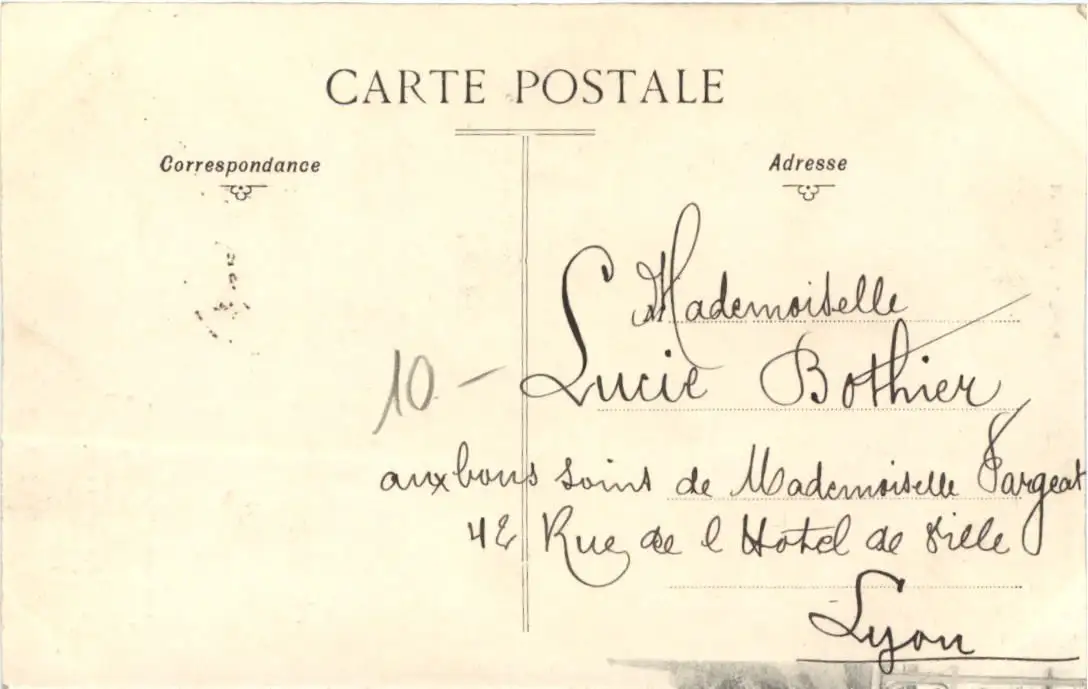 CARTE POSTALE
Correspondance
Adresse
Mademoiselle
10 -
Lucie Bothier
aux bons soins de Mademoiselle Fargeat
42 Rue de l Hotel de Ville
Lyon